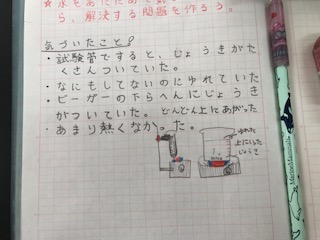 ★水をあたためて
ら、解決する問題を作ろう。
気づいたこと!
・試験管ですると、じょうきがた
くさんついていた。
・なにもしてないのにゆれていた
・ビーカーの下らへんにじょうき
がついていた。どんどん上にあがった
・あまり熱くなかった。
ゆれた
上にいった
じょうき